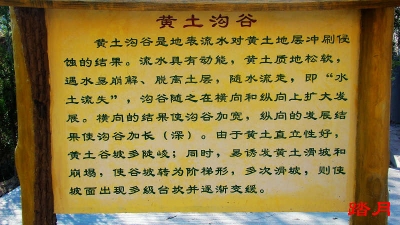 黄土沟谷
黄土沟谷是地表流水对黄土地层冲刷侵
蚀的结果。流水具有动能，黄土质地松软，
遇水易崩解、脱离土层，随水流走，即“水
土流失”，沟谷随之在横向和纵向上扩大发
展。横向的结果使沟谷加宽，纵向的发展结
果使沟谷加长（深）。由于黄土直立性好，
黄土谷坡多陡峻；同时，易诱发黄土滑坡和
崩塌，使谷坡转为阶梯形，多次滑坡，则使
坡面出现多级台坎并逐渐变缓。
踏月